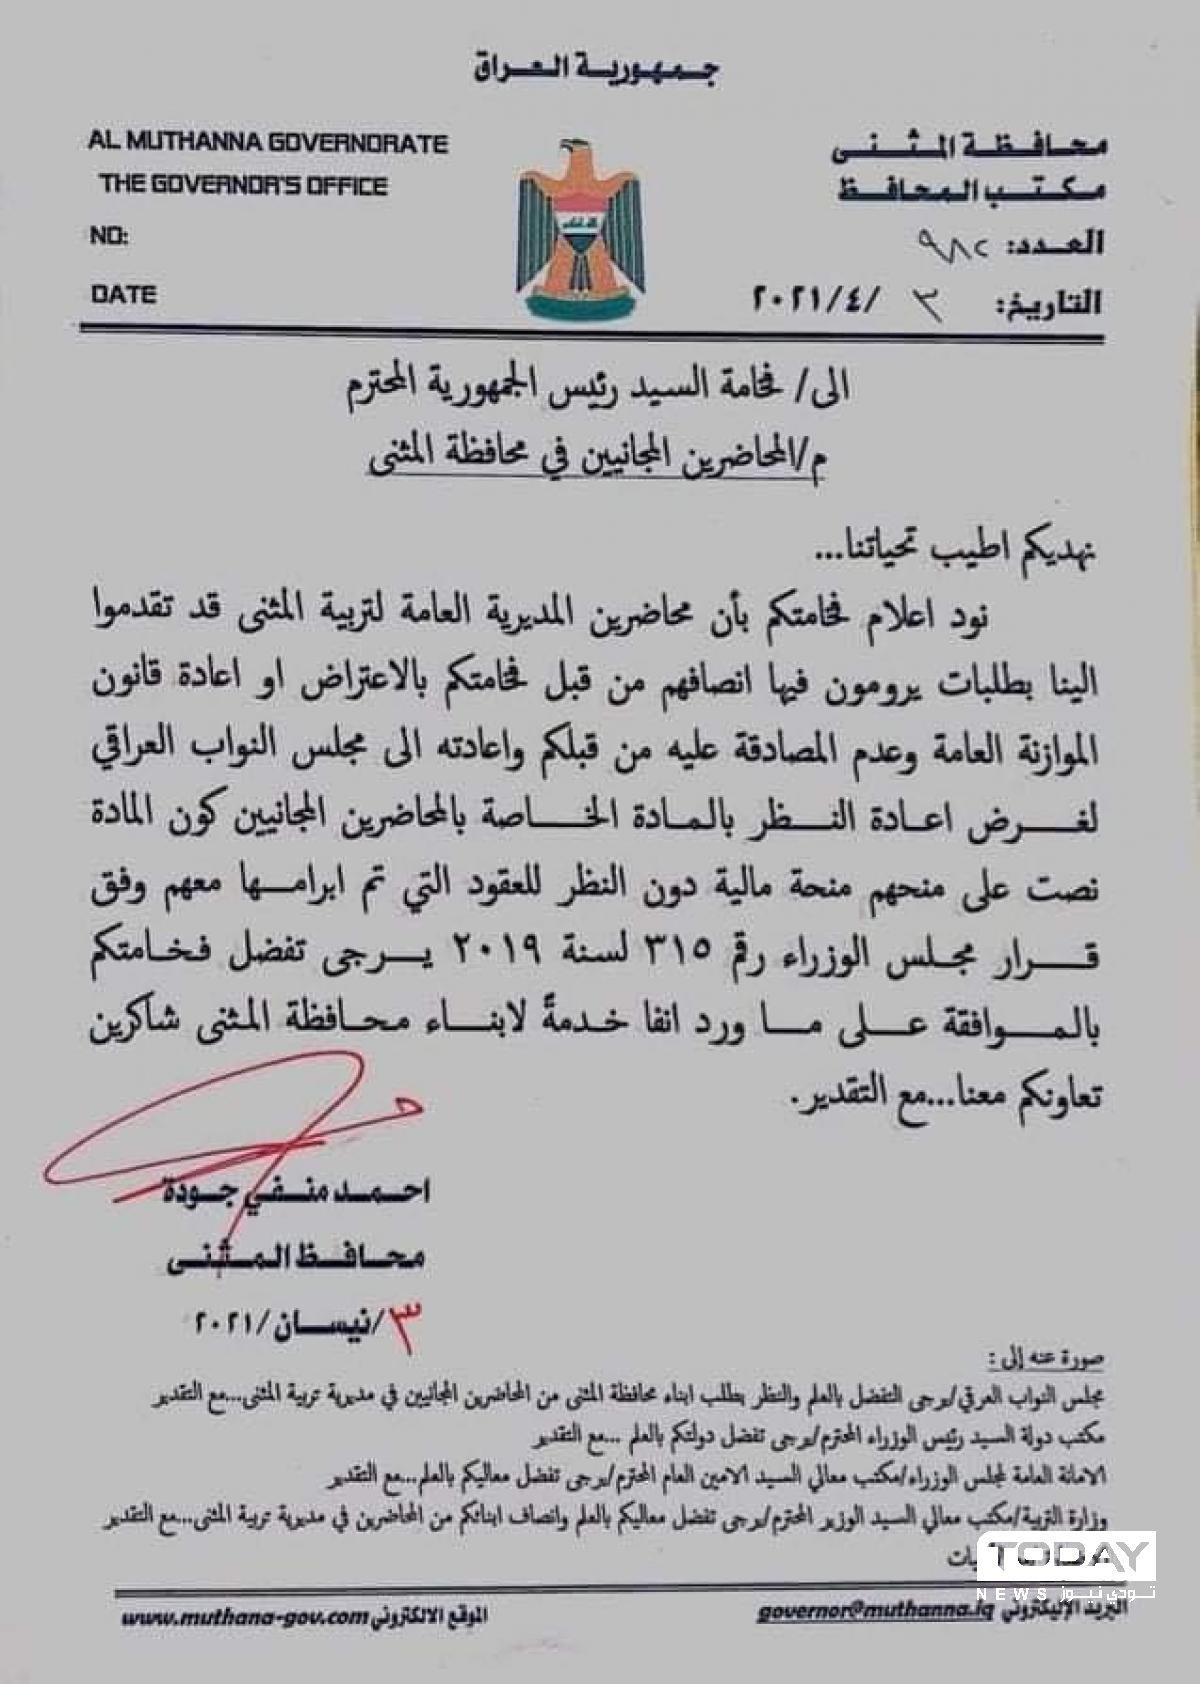 جمهورية العراق
AL MUTHANNA GOVERNORATE
THE GOVERNOR'S OFFICE
NO:
DATE
محافظة المثنى
مكتب المحافظ
العدد: ٩٨٢
التاريخ: ٣ /٤/ ٢٠٢١
الى/ فخامة السيد رئيس الجمهورية المحترم
م/المحاضرين المجانيين في محافظة المثنى
نهديكم اطيب تحياتنا...
نود اعلام فخامتكم بأن محاضرين المديرية العامة لتربية المثنى قد تقدموا
الينا بطلبات يرومون فيها انصافهم من قبل فخامتكم بالاعتراض او اعادة قانون
الموازنة العامة وعدم المصادقة عليه من قبلكم واعادته الى مجلس النواب العراقي
لغرض اعادة النظر بالمادة الخاصة بالمحاضرين المجانيين كون المادة
نصت على منحهم منحة مالية دون النظر للعقود التي تم ابرامها معهم وفق
قرار مجلس الوزراء رقم ٣١٥ لسنة ٢٠١٩ يرجى تفضل فخامتكم
بالموافقة على ما ورد انفا خدمةً لابناء محافظة المثنى شاكرين
تعاونكم معنا...مع التقدير.
احمد منفي جودة
محافظ المثنى
٣/نيسان/٢٠٢١
صورة عنه إلى:
مجلس النواب العرقي/يرجى التفضل بالعلم والنظر بطلب ابناء محافظة المثنى من المحاضرين المجانيين في مديرية تربية المثنى...مع التقدير
مكتب دولة السيد رئيس الوزراء المحترم/يرجى تفضل دولتكم بالعلم ...مع التقدير
الامانة العامة لمجلس الوزراء/مكتب معالي السيد الامين العام المحترم/يرجى تفضل معاليكم بالعلم...مع التقدير
وزارة التربية/مكتب معالي السيد الوزير المحترم/يرجى تفضل معاليكم بالعلم وانصاف ابنائكم من المحاضرين في مديرية تربية المثنى...مع التقدير
TODAY
NEWS تودي نيوز
البريد الإليكتروني governor@muthanna.iq
الموقع الالكتروني www.muthana-gov.com